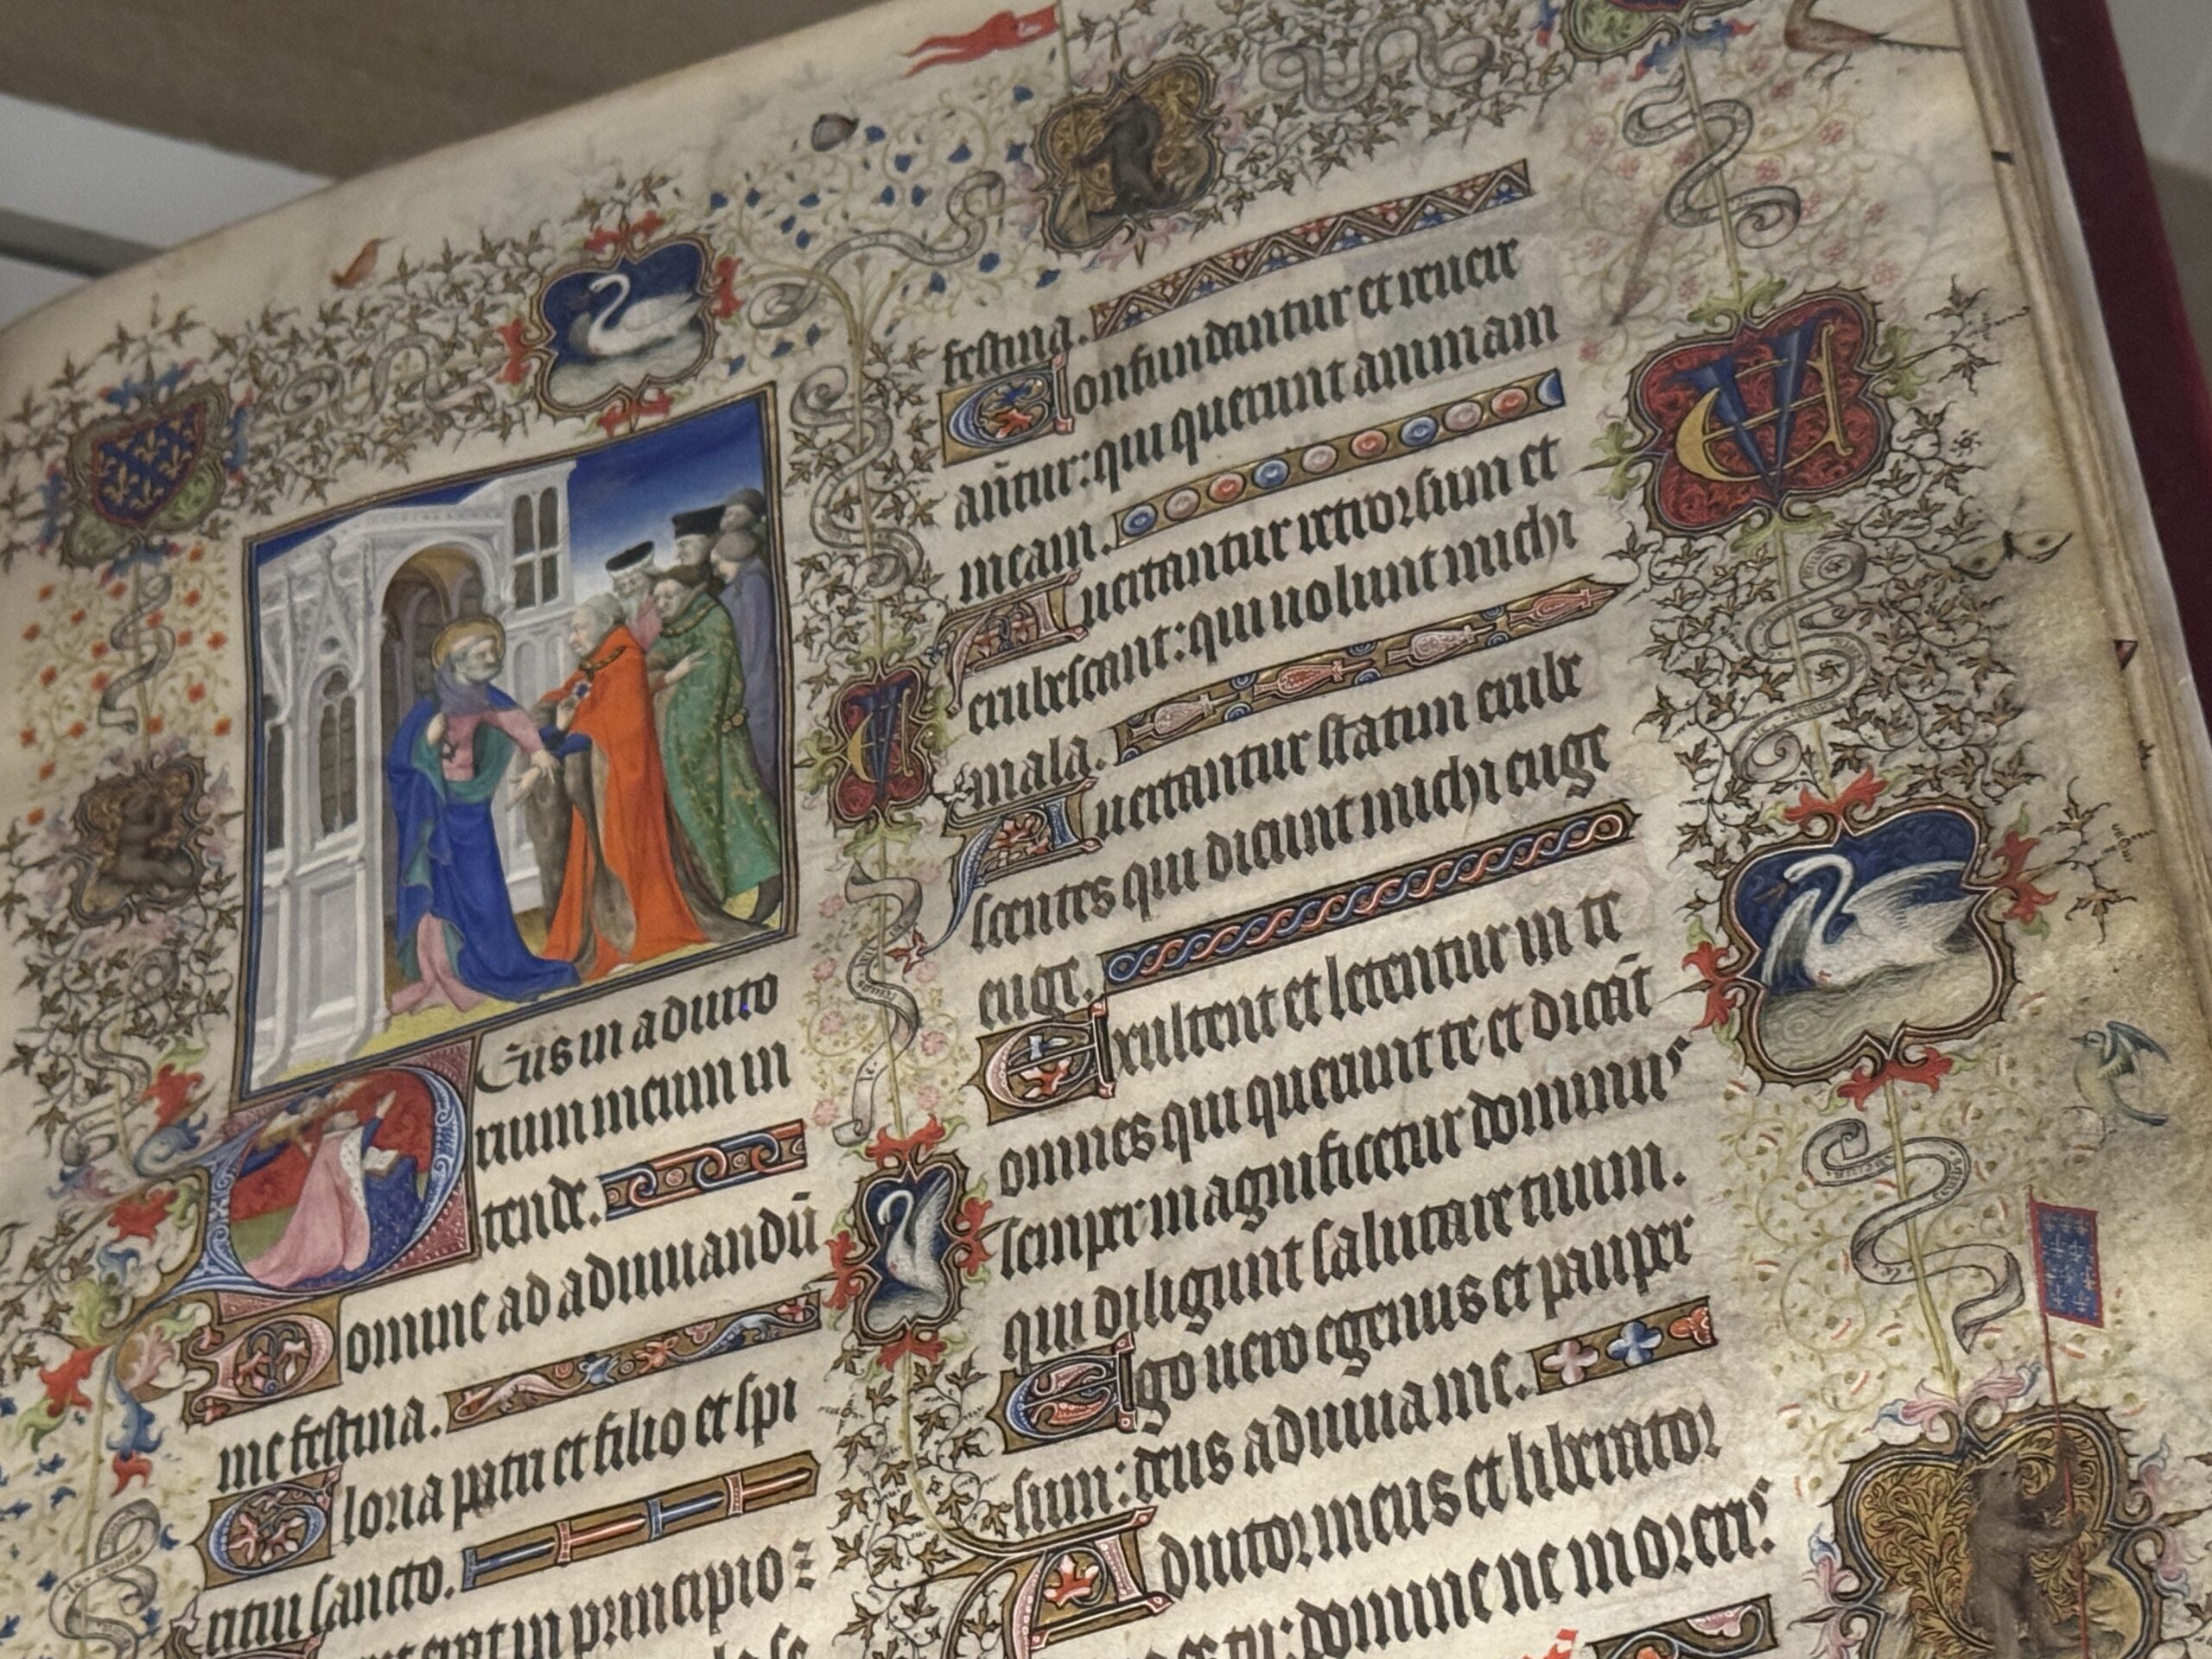 Deus in adiuto
rium meum in
tende.
Domine ad adiuuandū
me festina.
Gloria patri et filio et spi
ritui sancto.
erat in principio
festina.
Confundantur et reuere
an̄tur: qui querunt animam
meam.
Auertantur retrorsum et
erubescant: qui uolunt michi
mala.
Auertantur statim erube
scentes qui dicunt michi euge
euge.
Exultent et letentur in te
omnes qui querunt te et dicāt
semper magnificetur dominus
qui diligunt salutare tuum.
Ego uero egenus et pauper
sum: deus adiuua me.
Adiutor meus et liberator
es tu: domine ne moreris.